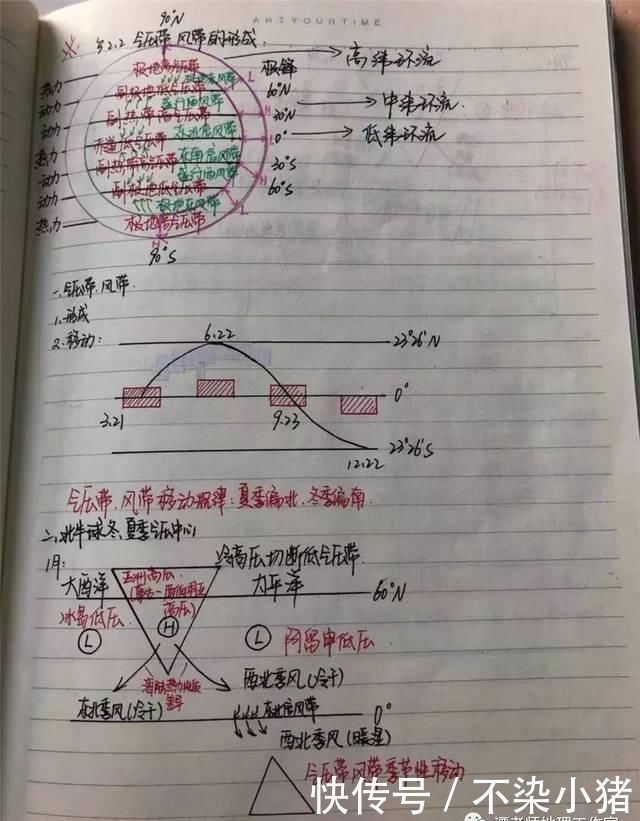 ARTYOURTIME
※ 3.2.2 气压带风带的形成
90°N
高纬环流
中纬环流
低纬环流
极锋
60°N
30°N
0°
30°S
60°S
90°S
热力
动力
动力
热力
动力
动力
热力
极地高气压带
极地东风带
副极地低气压带
盛行西风带
副热带高气压带
东北信风带
赤道低气压带
东南信风带
副热带高气压带
盛行西风带
副极地低气压带
极地东风带
极地高气压带
一、气压带、风带
1.形成
2.移动:
6.22
23°26′N
0°
3.21
9.23
23°26′S
12.22
气压带、风带移动规律:夏季偏北、冬季偏南
二、北半球冬、夏季气压中心
1月:
冷高压切断低气压带
大西洋
亚洲高压
(蒙古—西伯利亚高压)
太平洋
60°N
冰岛低压
L
H
L
阿留申低压
海陆热力性质差异
西北季风(冷干)
东北季风(冷干)
东北信风带
0°
西北季风(暖湿)
气压带风带季节性移动
快传号/不染小猪